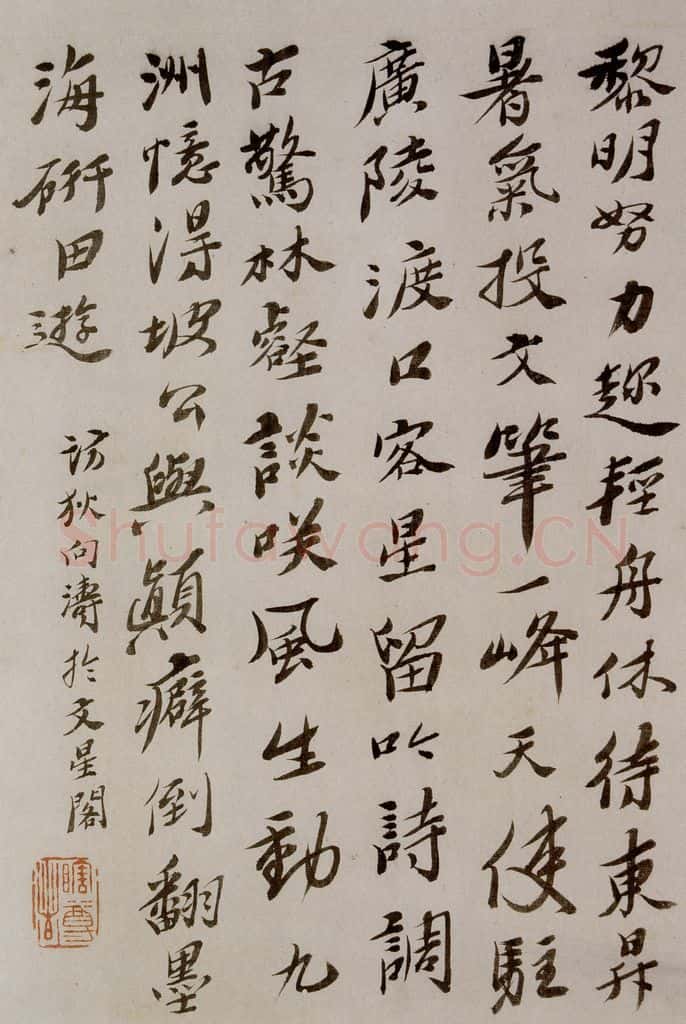 黎明努力趂輕舟休待東昇
暑氣投文筆一峰天使駐
廣陵渡口客星留吟詩調
古驚林壑談咲風生動九
洲憶得坡公與顛癖倒翻墨
海研田遊
訪狄向濤於文星閣
Shufawang.CN